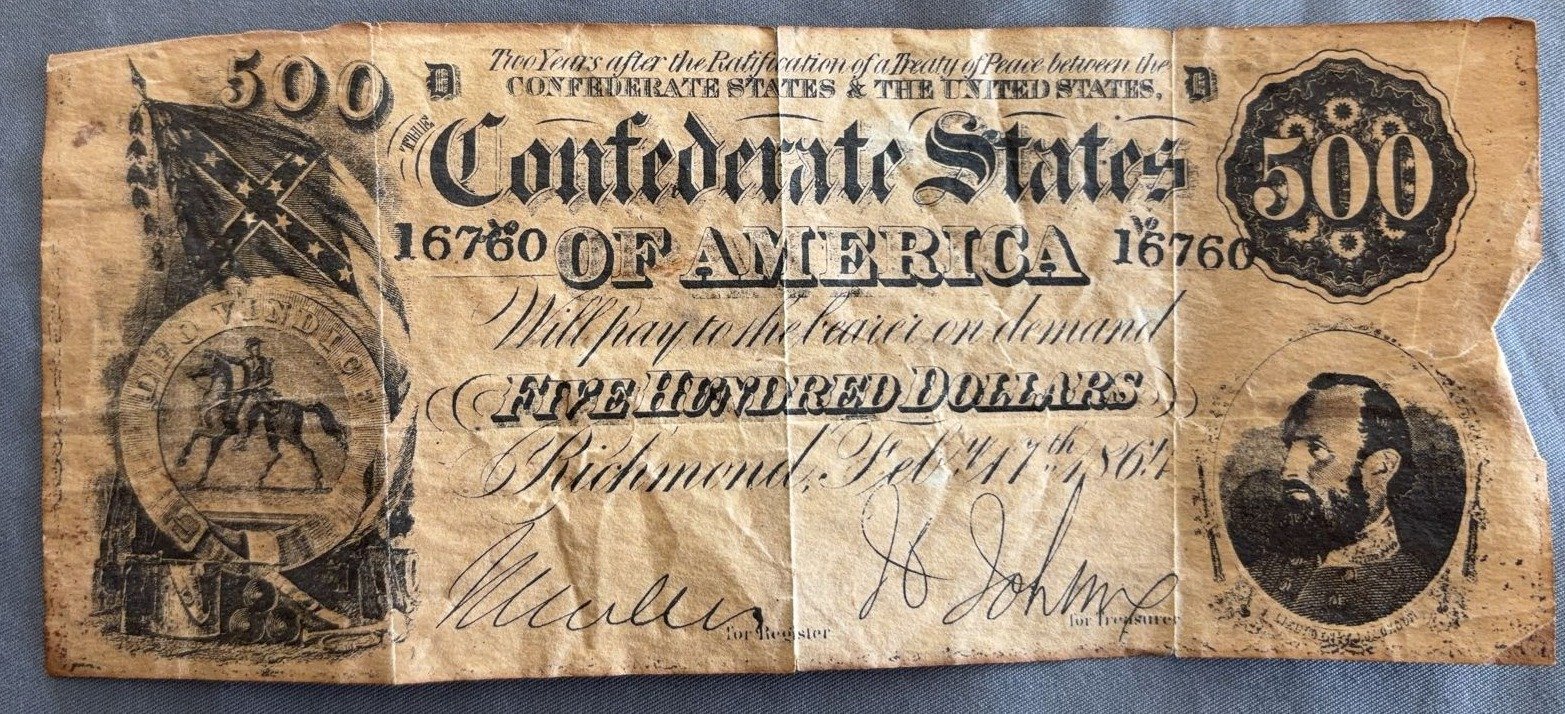 500
D Two Years after the Ratification of a Treaty of Peace between the D
CONFEDERATE STATES & THE UNITED STATES,
THE
Confederate States
500
No 16760
OF AMERICA
No 16760
Will pay to the bearer on demand
FIVE HUNDRED DOLLARS
Richmond, Feby 17th, 1864
DEO VINDICE
for Register
for Treasurer